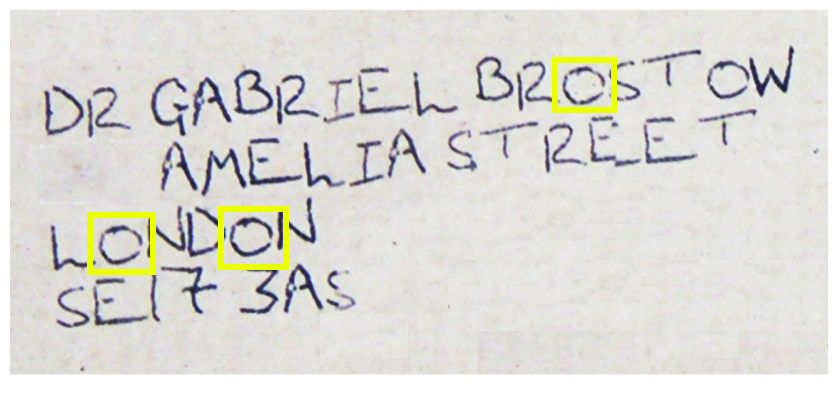 DR GABRIEL BROSTOW
AMELIA STREET
LONDON
SE17 3AS